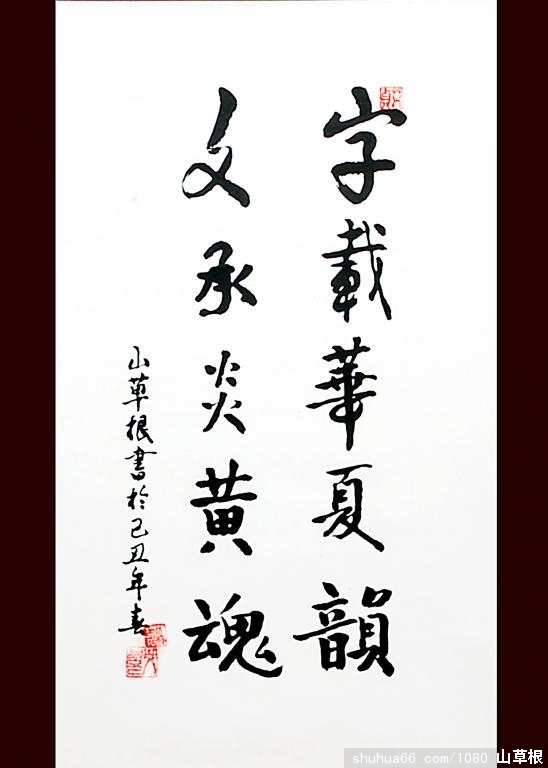 字載華夏韻
文承炎黄魂
山草根書於己丑年春
shuhua66.com/1080 山草根